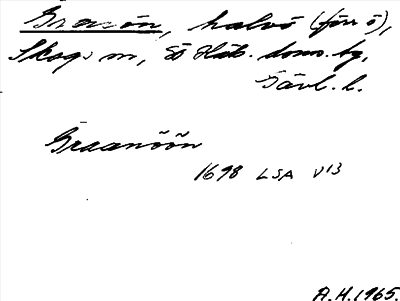 Granön, halvö (förr ö),
Skogs sn, SÖ Häls. doms. bg,
Gävl. l.
Graanöön
1698 LSA V13
A.H. 1965.